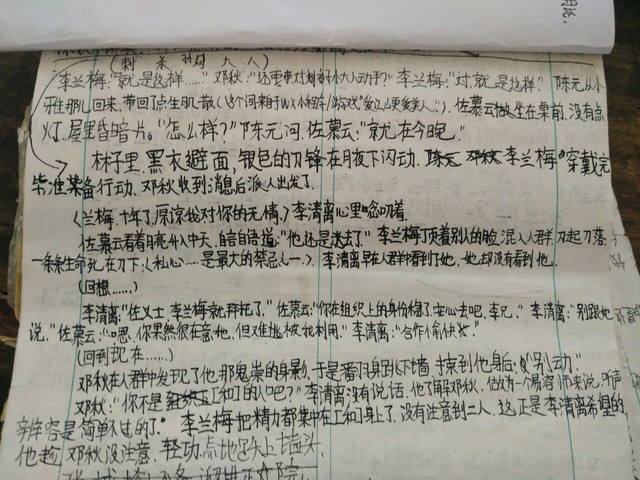 大人)
李兰梅:"就是这样……"邓秋:"还要带对刘府小大人动手?"李兰梅:"对,就是这样"陈元从小
牙住那儿回来,带回了点生肌散(这个词来于以小组乐游戏"爱江山更爱美人")。佐藤云坐在桌前,没有点
灯,屋里昏暗一片。"怎么样?"陈元问,佐藤云:"就在今晚"
林子里,黑衣避面,银色的刀锋在月夜下闪动,李兰梅穿戴完
毕准备行动,邓秋收到消息后派人出发了。
(兰梅,十年了,原谅我对你的无情。)李清离心里唸叨着
佐藤云看着月亮升入中天,自言自语道:"他还是去了"李兰梅顶着别人的脸,混入人群,刀起刀落
一条条生命死在刀下:(私心……是最大的禁忌(一)。李清离早在人群中看到了她,她却没有看到他
(回想……)
李清离:"佐义士,李兰梅就拜托了。"佐藤云:"你在组织上的身份稳了,安心去吧,李兄。"李清离:"别跟她
说,"佐藤云:"嗯,你果然很在意他,但难逃被我利用。"李清离:"合作愉快"
(回到现在……)
邓秋在人群中发现了他那鬼祟的身影,于是翻身跳下墙,掠到他身后:"别动"
邓秋:"你不是王和们的人吧?"李清离没有说话,他了解邓秋,做为一名易容师来说,听声
辨容是简单不过的了。李兰梅把精力都集中在王和身上了,没有注意到二人,这正是李清离希望的,
他趁邓秋没注意,轻功点地跃上墙头,